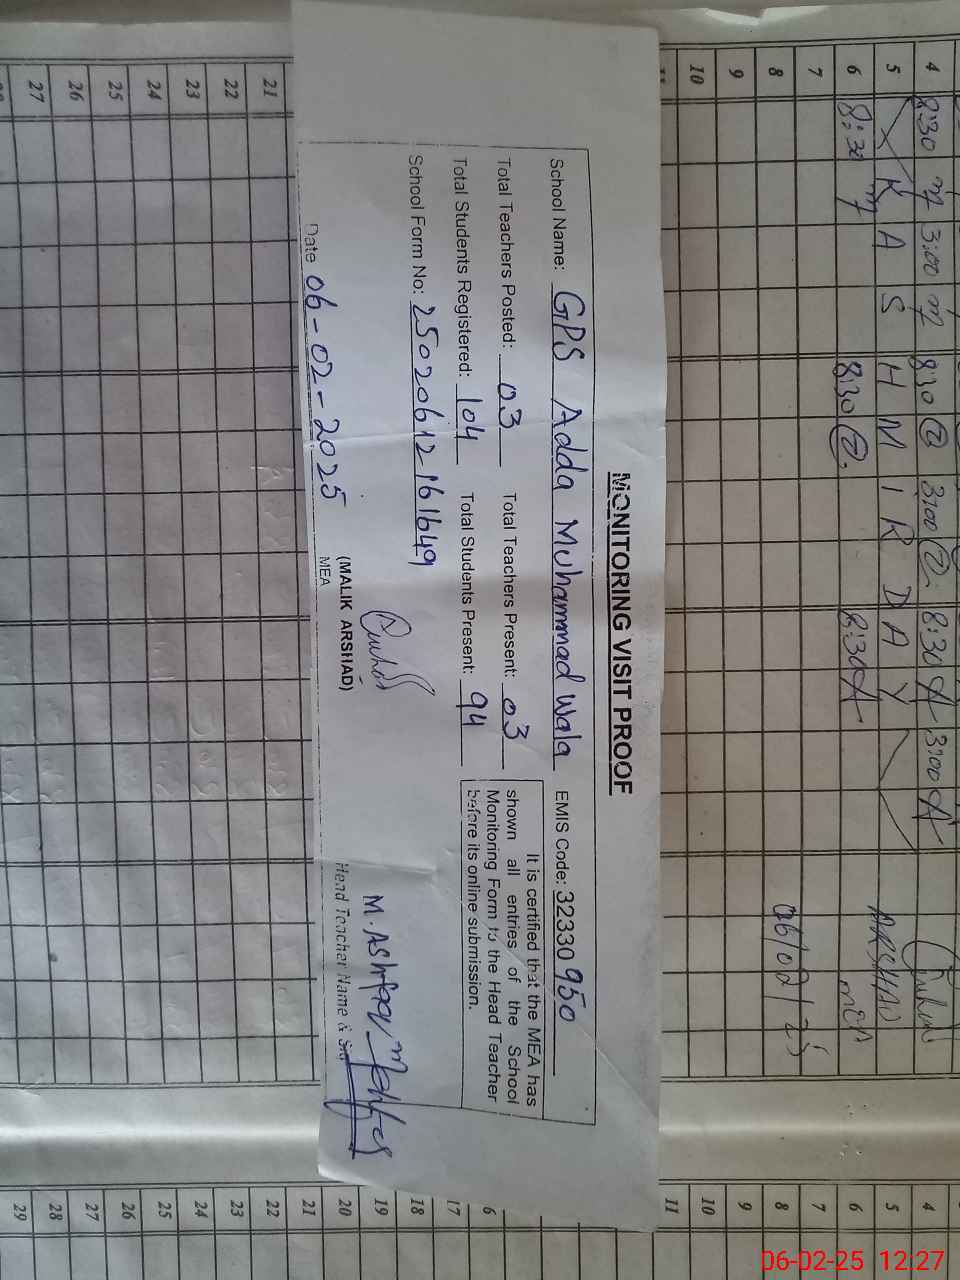 MONITORING VISIT PROOF
School Name: GPS Adda Muhammad Wala EMIS Code: 32330950
Total Teachers Posted: 03 Total Teachers Present: 03
Total Students Registered: 104 Total Students Present: 94
School Form No: 25020612161649
It is certified that the MEA has
shown all entries of the School
Monitoring Form to the Head Teacher
before its online submission.
Date 06-02-2025
(MALIK ARSHAD)
MEA
M. Ashfaq
Head Teacher Name & Sig
4 8:30 3:00 8:30 3:00 8:30 A 3:00 A
5 K A S H M I R D A Y ARSHAD
6 8:30 8:30 8:30 A MEA
7
8 06/02/25
9
10
11
21
22
23
24
25
26
27
4
5
6
7
8
9
10
11
6
17
18
19
20
21
22
23
24
25
26
27
28
29
06-02-25 12:27